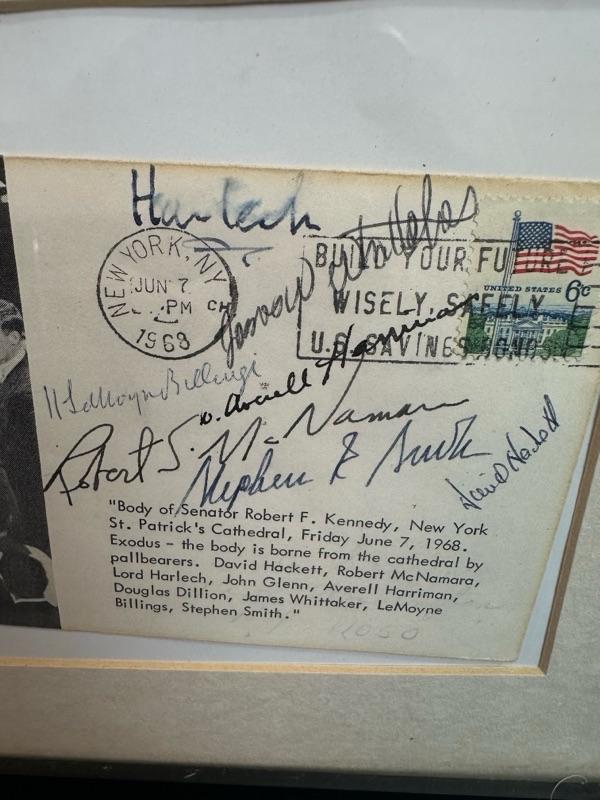 Harlech
NEW YORK, NY
JUN 7
PM
1968
BUILD YOUR FUTURE
WISELY, SAFELY
U.S. SAVINGS BONDS
UNITED STATES 6c
W. Averell Harriman
Robert S. McNamara
Stephen E Smith
David Hackett
"Body of Senator Robert F. Kennedy, New York
St. Patrick's Cathedral, Friday June 7, 1968.
Exodus – the body is borne from the cathedral by
pallbearers. David Hackett, Robert McNamara,
Lord Harlech, John Glenn, Averell Harriman,
Douglas Dillion, James Whittaker, LeMoyne
Billings, Stephen Smith."